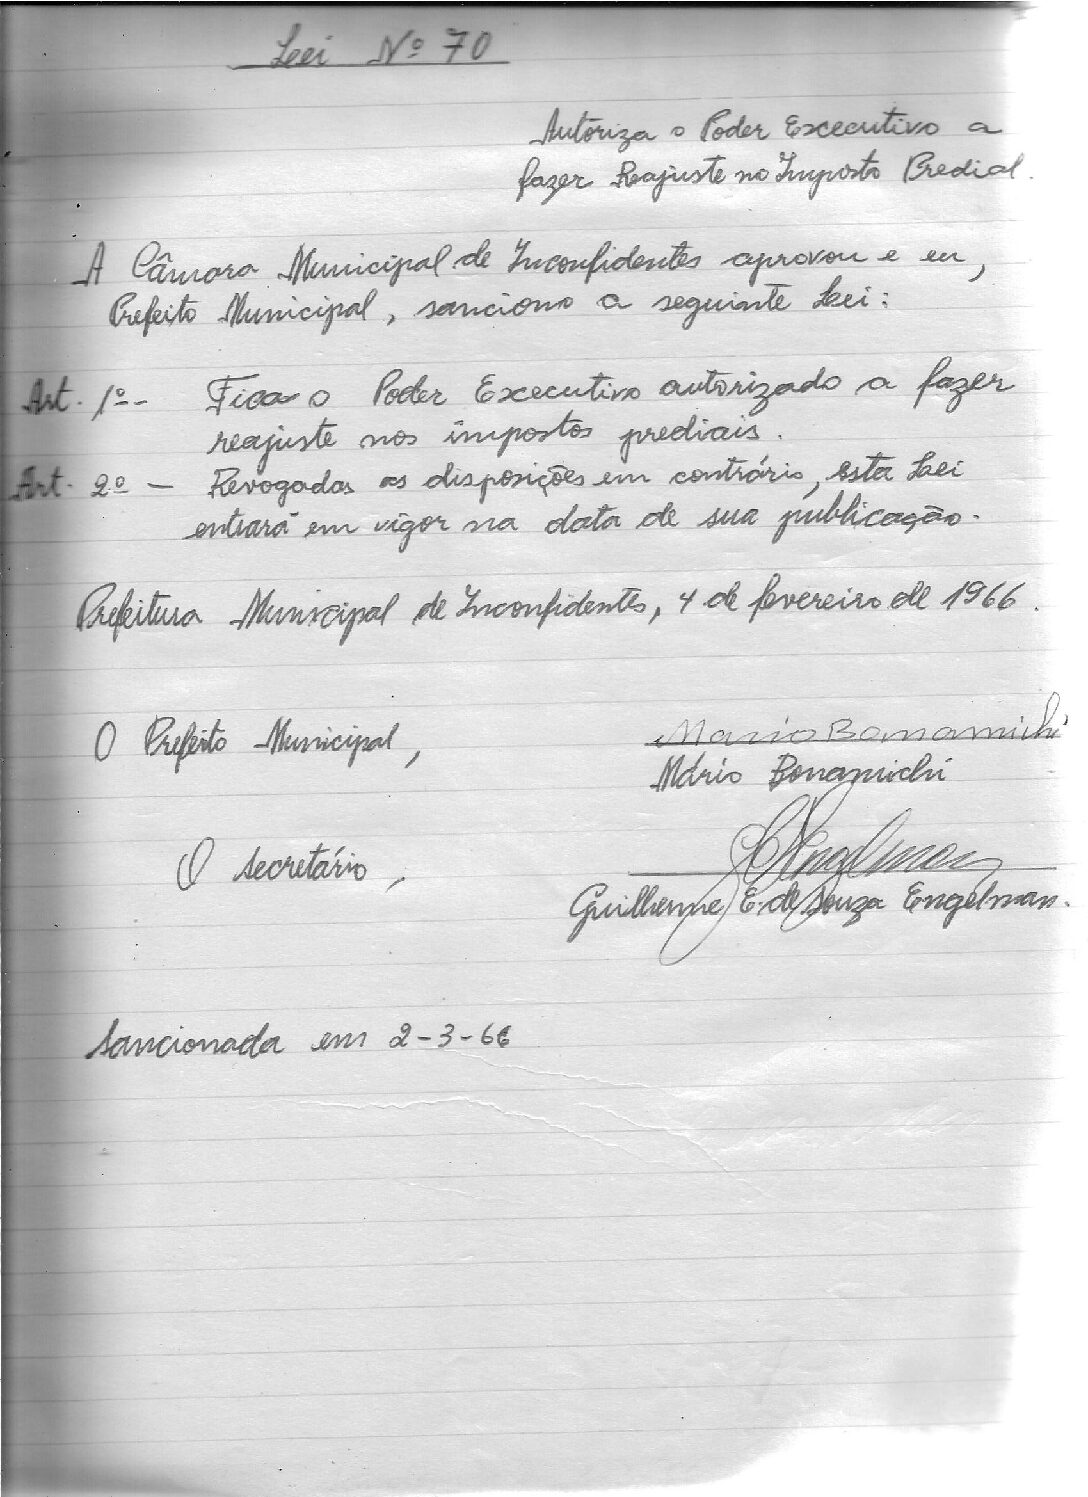 Lei Nº 70
Autoriza o Poder Executivo a
fazer Reajuste no Imposto Predial.
A Câmara Municipal de Inconfidentes aprovou e eu,
Prefeito Municipal, sanciono a seguinte Lei:
Art. 1º - Fica o Poder Executivo autorizado a fazer
reajuste nos impostos prediais.
Art. 2º - Revogadas as disposições em contrário, esta Lei
entrará em vigor na data de sua publicação.
Prefeitura Municipal de Inconfidentes, 4 de fevereiro de 1966.
O Prefeito Municipal, Mario Bonamichi
Mário Bonamichi
O secretário, Engelman
Guilherme E. de Souza Engelman.
Sancionada em 2-3-66